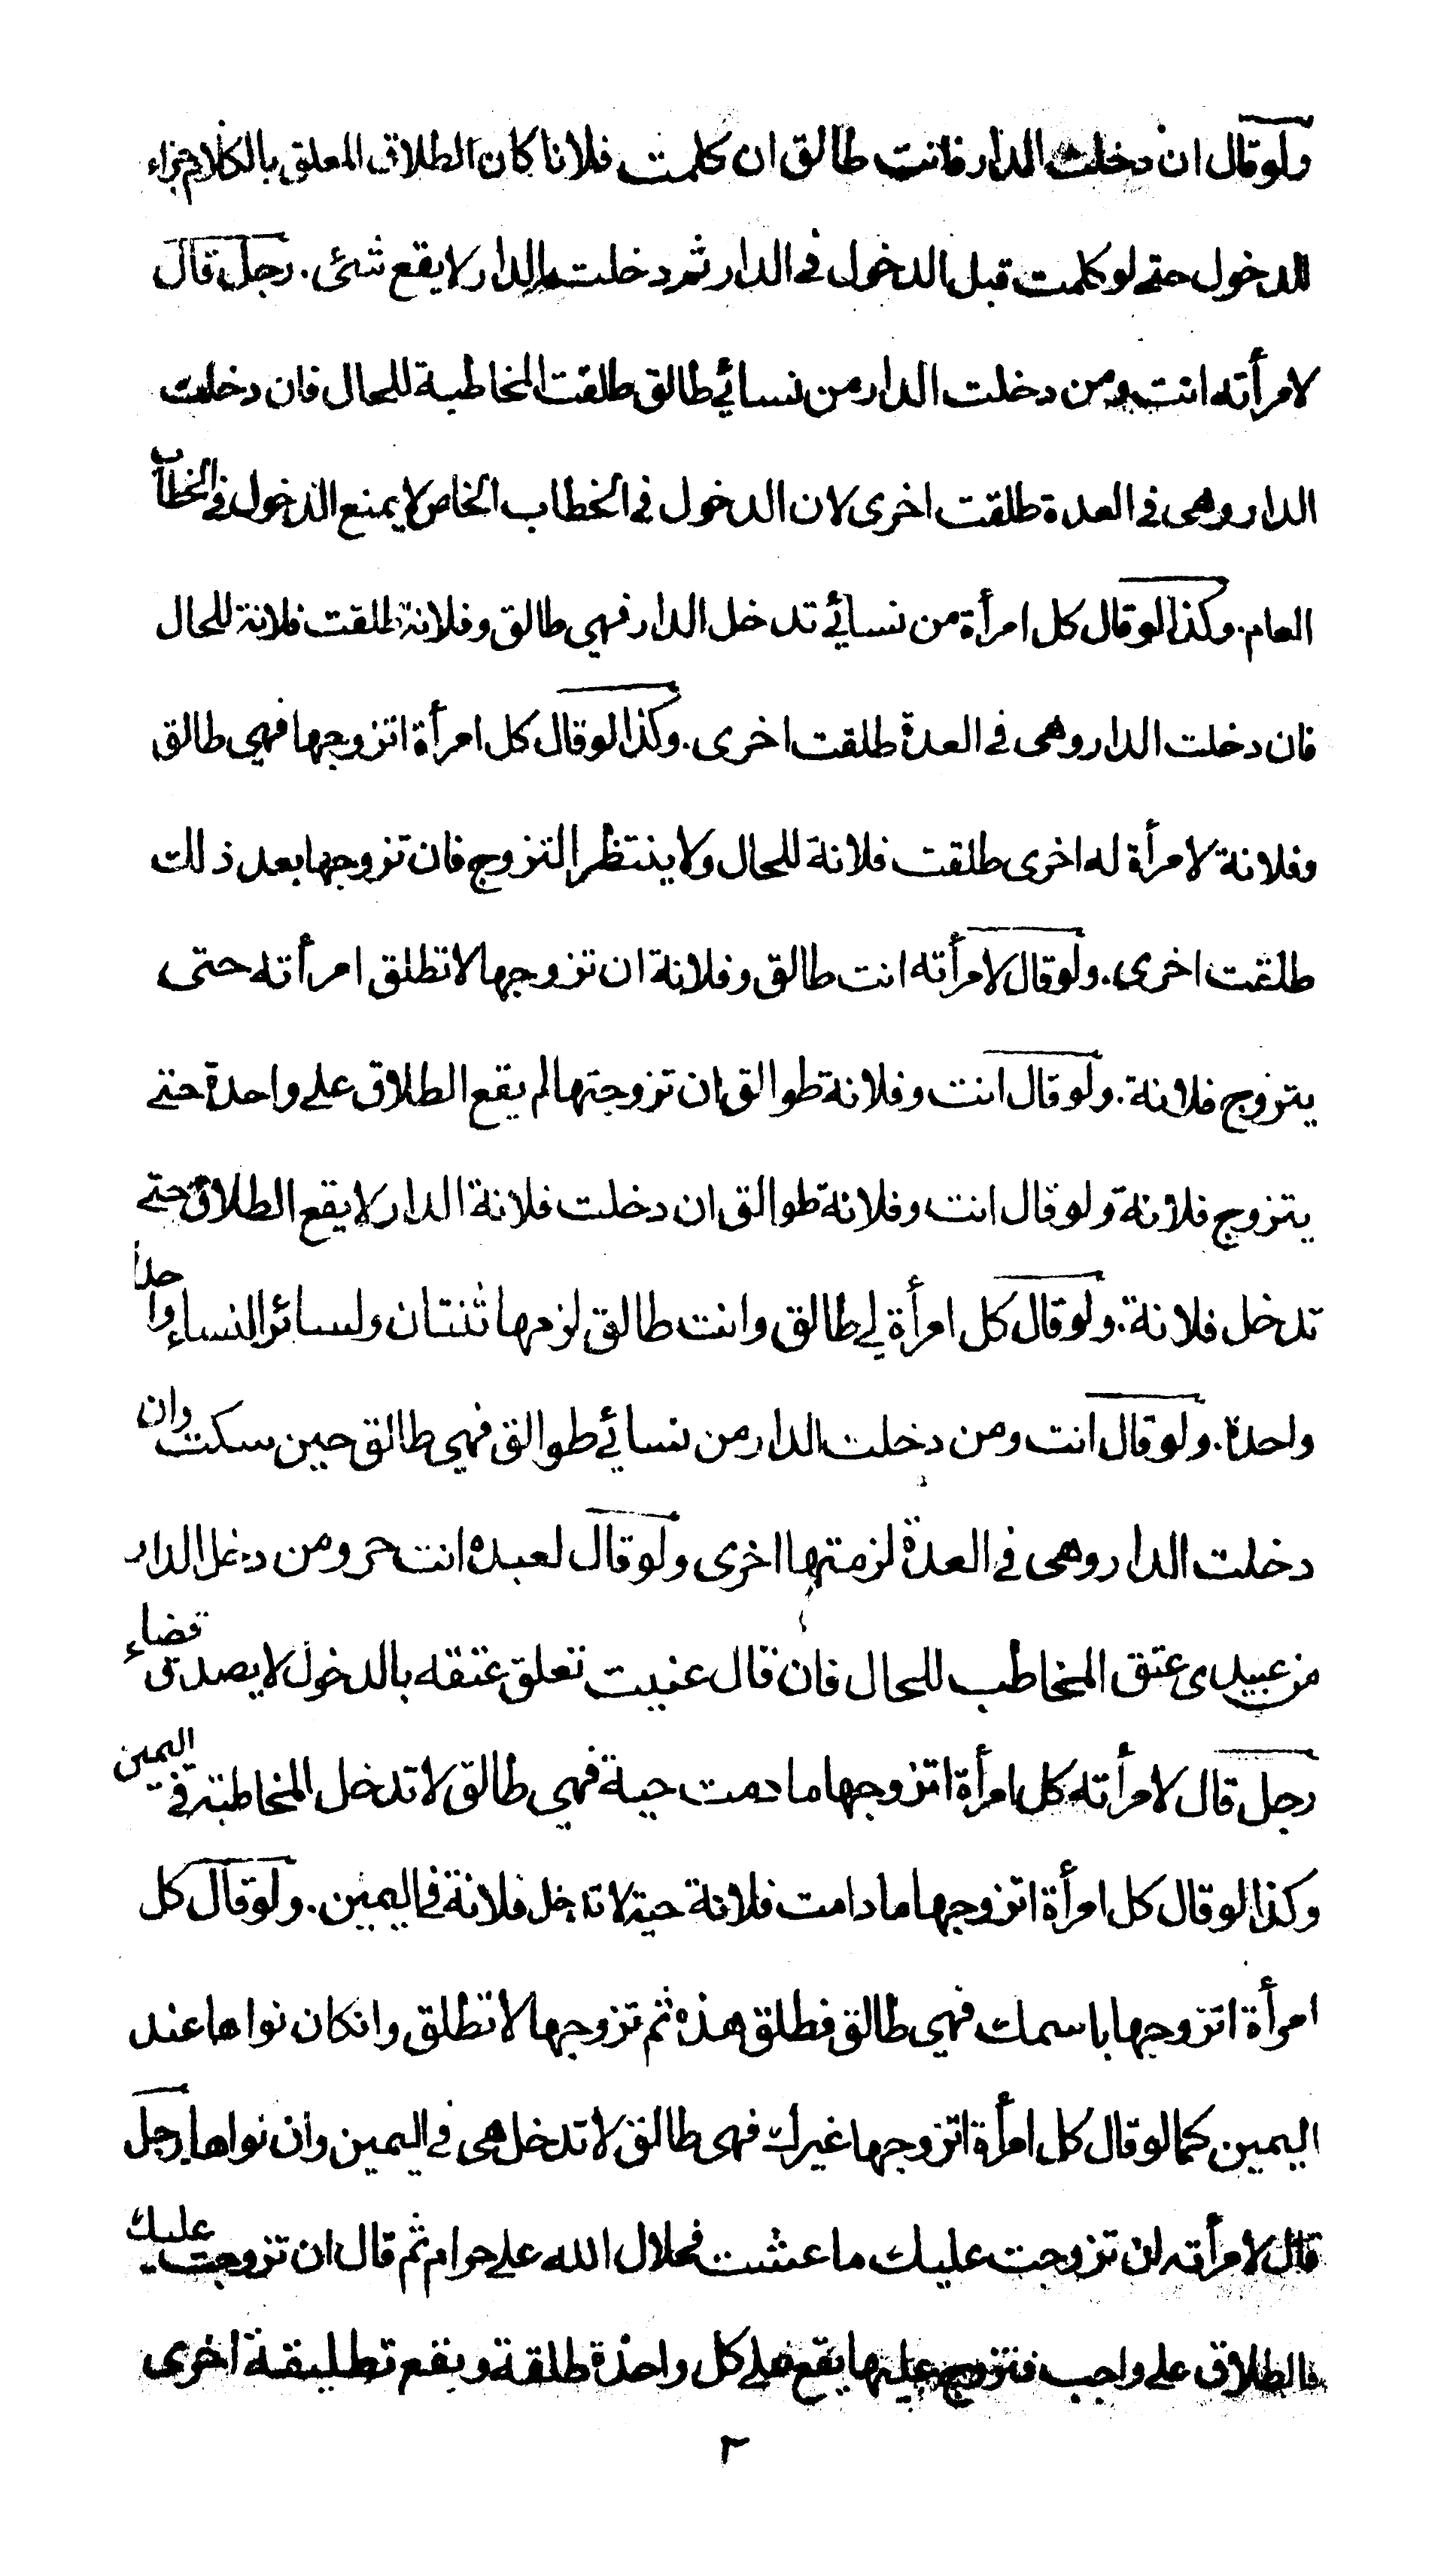 ولو قال ان دخلت الدار فانت طالق ان كلمت فلانا كان الطلاق المعلق بالكلام جزاء
للدخول حتى لو كلمت قبل الدخول في الدار ثم دخلت الدار لا يقع شئ. رجل قال
لامرأته انت ومن دخلت الدار من نسائي طالق طلقت المخاطبة للحال فان دخلت
الدار وهى في العدة طلقت اخرى لان الدخول في الخطاب الخاص لا يمنع الدخول في الخطاب
العام. وكذا لو قال كل امرأة من نسائي تدخل الدار فهي طالق وفلانة طلقت فلانة للحال
فان دخلت الدار وهى في العدة طلقت اخرى. وكذا لو قال كل امرأة اتزوجها فهي طالق
وفلانة لامرأة له اخرى طلقت فلانة للحال ولا ينتظر التزوج فان تزوجها بعد ذلك
طلقت اخرى. ولو قال لامرأته انت طالق وفلانة ان تزوجها لا تطلق امرأته حتى
يتزوج فلانة. ولو قال انت وفلانة طوالق ان تزوجتها لم يقع الطلاق على واحدة حتى
يتزوج فلانة ولو قال انت وفلانة طوالق ان دخلت فلانة الدار لا يقع الطلاق حتى
تدخل فلانة. ولو قال كل امرأة لي طالق وانت طالق لزمها ثنتان ولسائر النساء واحدا
واحدة. ولو قال انت ومن دخلت الدار من نسائي طوالق فهي طالق حين سكت وان
دخلت الدار وهى في العدة لزمتها اخرى ولو قال لعبده انت حر ومن دخل الدار
من عبيدى عتق المخاطب للحال فان قال عنيت تعلق عتقه بالدخول لا يصدق قضاء
رجل قال لامرأته كل امرأة اتزوجها ما دمت حية فهي طالق لا تدخل المخاطبة في اليمين
وكذا لو قال كل امرأة اتزوجها ما دامت فلانة حية لا تدخل فلانة في اليمين. ولو قال كل
امرأة اتزوجها باسمك فهي طالق فطلق هذه ثم تزوجها لا تطلق وانكان نواها عند
اليمين كما لو قال كل امرأة اتزوجها غيرك فهى طالق لا تدخل هى في اليمين وان نواها. رجل
قال لامرأته ان تزوجت عليك ما عشت فحلال الله علي حرام ثم قال ان تزوجت عليك
فالطلاق علي واجب فتزوج عليها يقع على كل واحدة طلقة ويقع تطليقة اخرى
٣